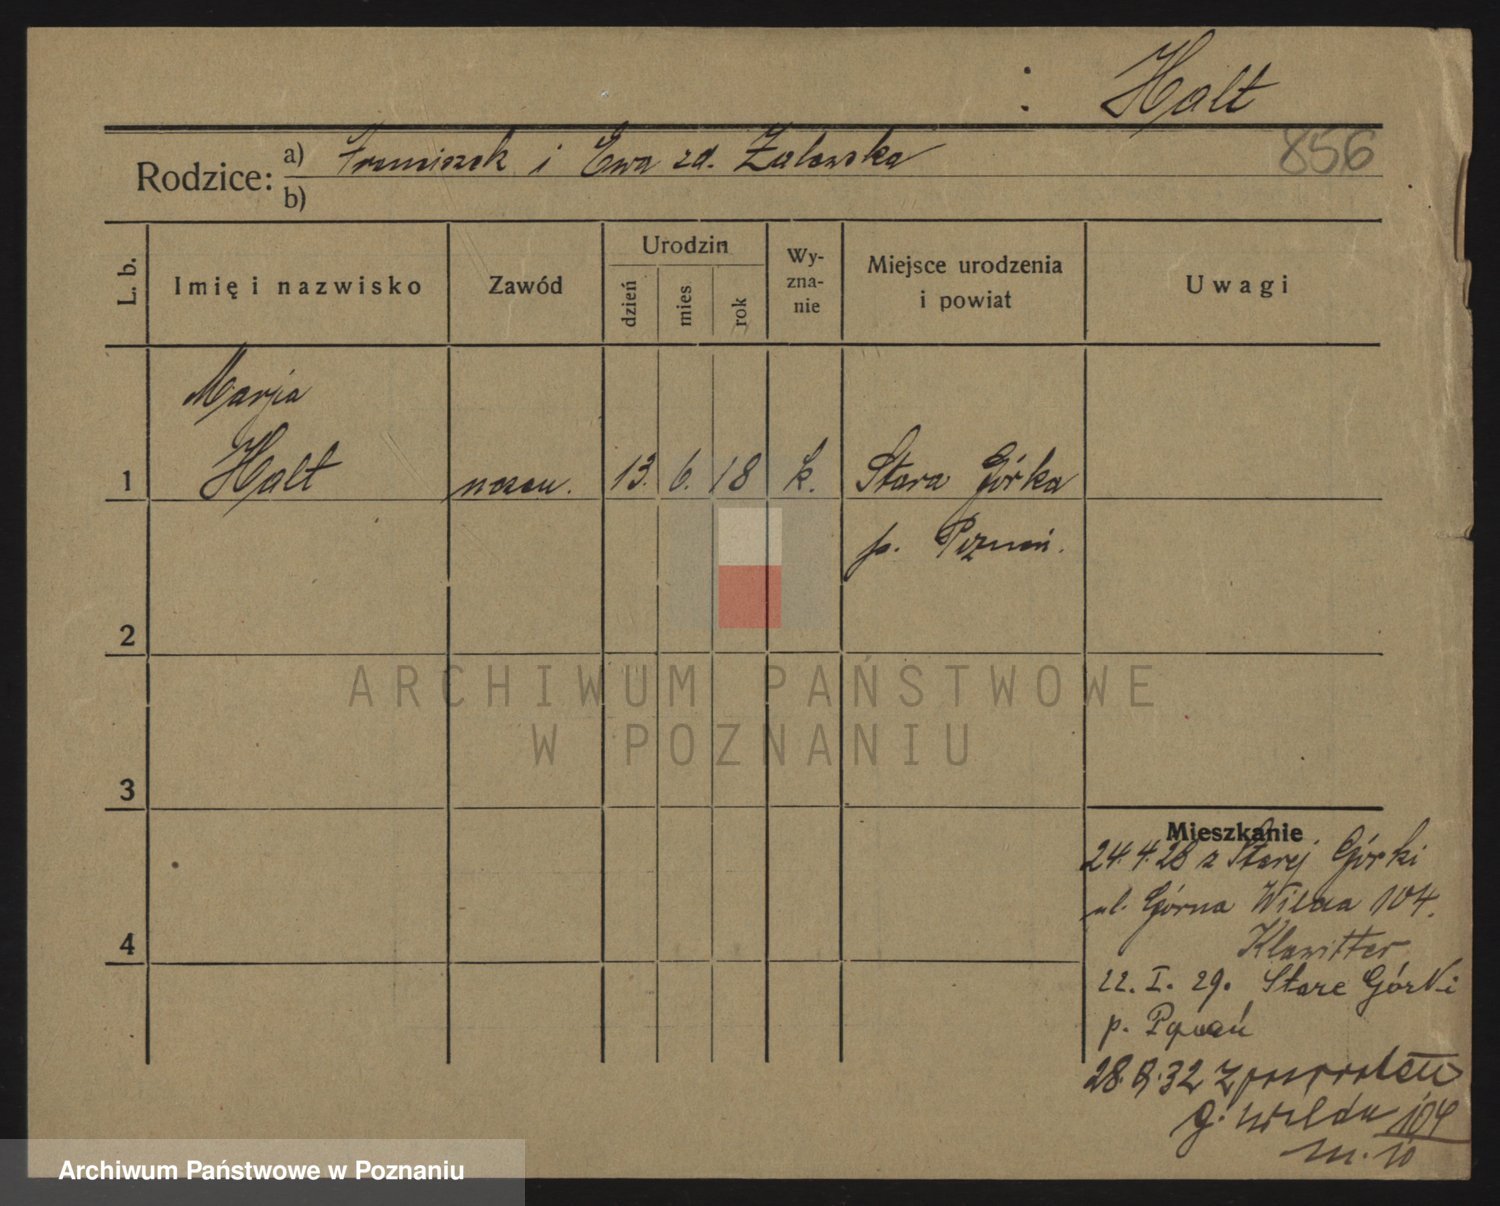 : Halt
856
Rodzice: a) Franciszek i Ewa zd. Zalewska
b)
L. b.
Imię i nazwisko
Zawód
Urodzin
dzień
mies
rok
Wy-
zna-
nie
Miejsce urodzenia
i powiat
Uwagi
Marja
1 Halt uczen. 13. 6. 18 k. Stara Górka
p. Poznań.
2
3
4
Mieszkanie
24.4.28 z Starej Górki
ul. Górna Wilda 104.
Klawitter
22. I. 29. Stare Górki
p. Poznań
28.9.32 z powrotem
g. Wilda 104
m. 10
ARCHIWUM PAŃSTWOWE
W POZNANIU
Archiwum Państwowe w Poznaniu